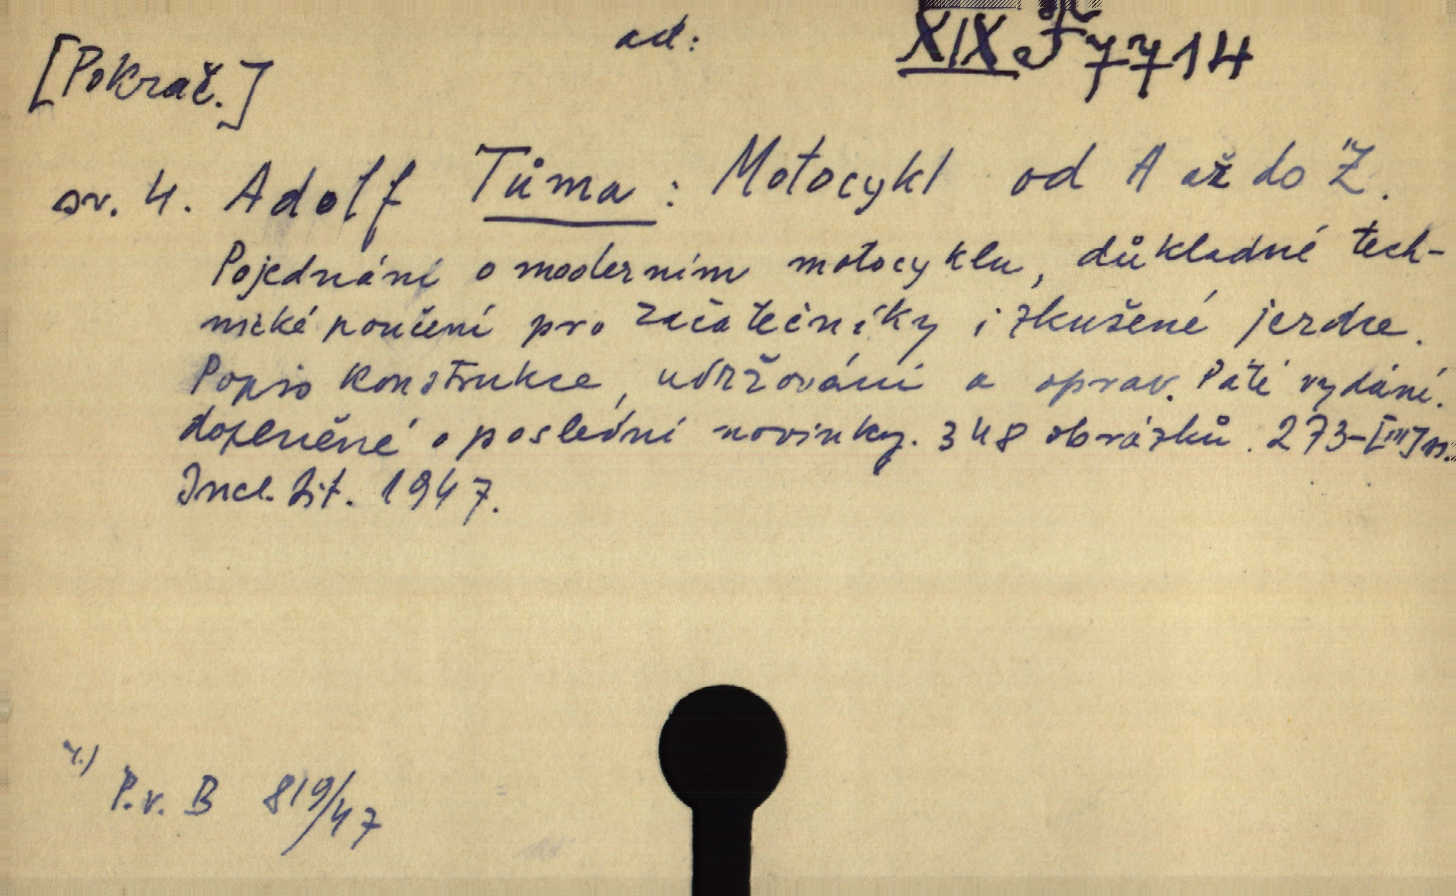 ad: XIX J 7714
[Pokrač.]
sv. 4. Adolf Tůma: Motocykl od A až do Z.
Pojednání o moderním motocyklu, důkladné tech-
nické poučení pro začátečníky i zkušené jezdce.
Popis konstrukce, udržování a oprav. Páté vydání.
doplněné o poslední novinky. 348 obrázků. 273-[III] s.
Incl. lit. 1947.
4.)
P.v. B 819/47